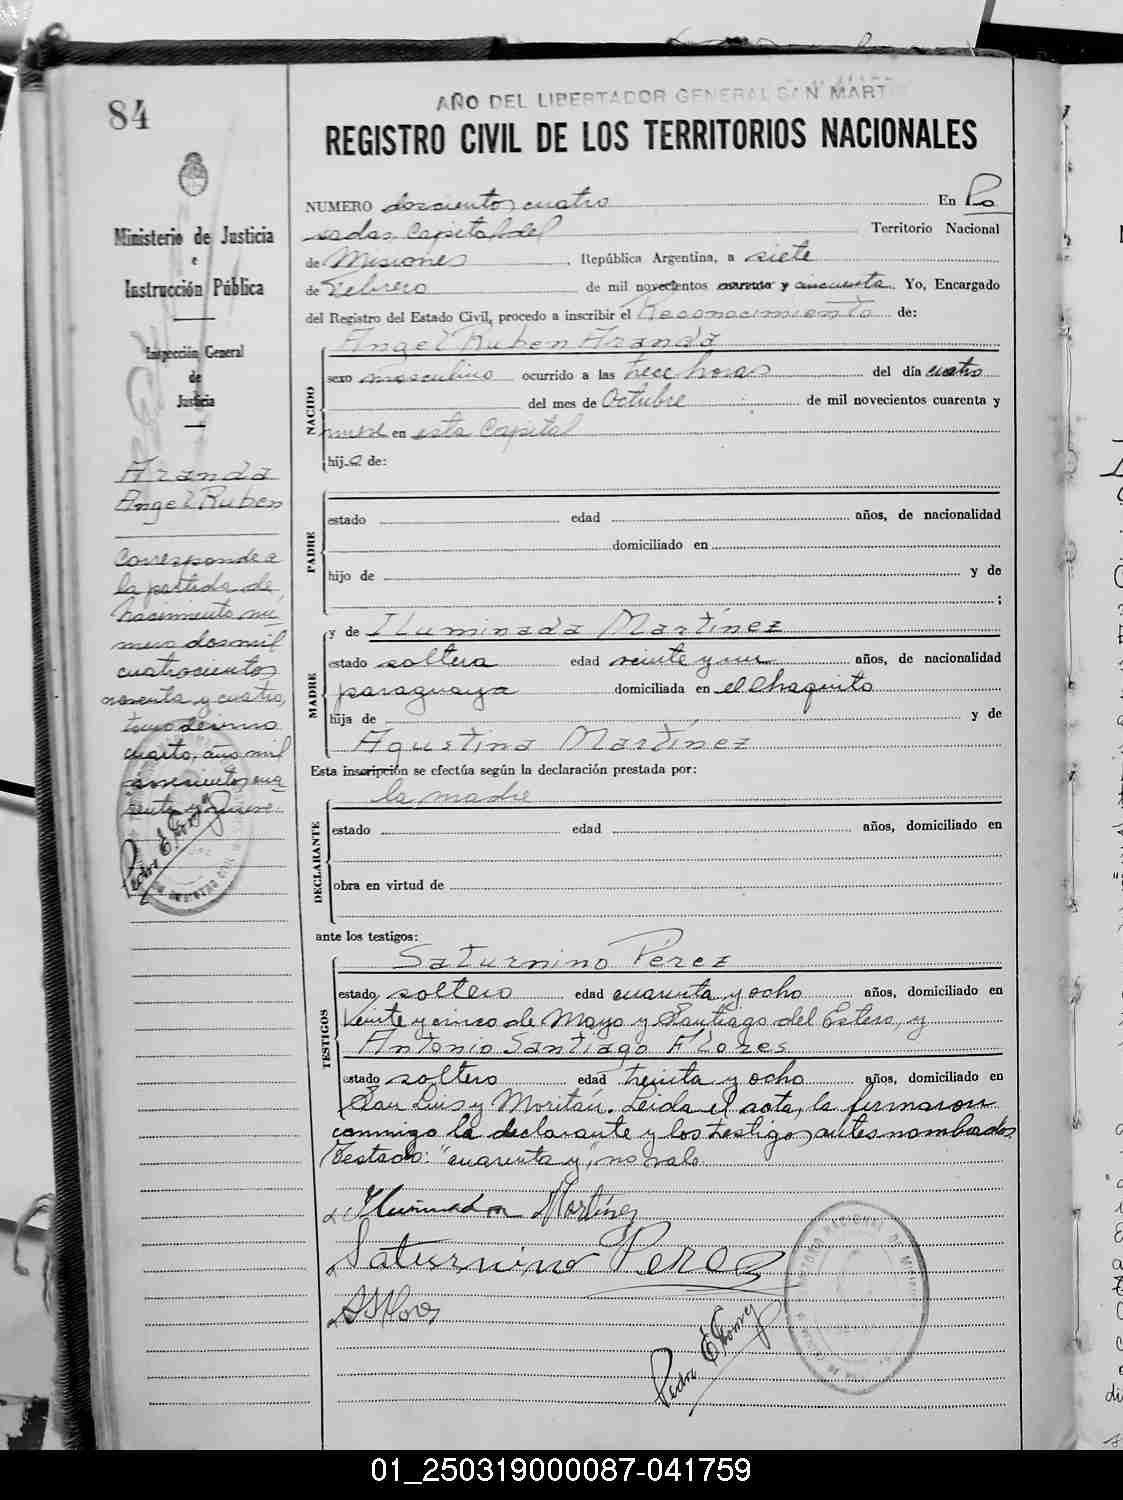 84
AÑO DEL LIBERTADOR GENERAL SAN MARTI
REGISTRO CIVIL DE LOS TERRITORIOS NACIONALES
Ministerio de Justicia
e
Instrucción Pública
Inspección General
de
Justicia
Aranda
Angel Ruben
Corresponde a
la partida de
nacimiento nu
mero dos mil
cuatrocientos
noventa y cuatro,
tomo decimo
cuarto, año mil
novecientos cua
renta y nueve.
Pedro E.
NUMERO doscientos cuatro En Po
sadas Capital del Territorio Nacional
de Misiones, República Argentina, a siete
de Febrero de mil novecientos cuarenta y cincuenta. Yo, Encargado
del Registro del Estado Civil, procedo a inscribir el Reconocimiento de:
NACIDO
Angel Ruben Aranda
sexo masculino ocurrido a las trece horas del día cuatro
del mes de Octubre de mil novecientos cuarenta y
nueve en esta Capital
hijo de:
PADRE
estado edad años, de nacionalidad
domiciliado en
hijo de y de
;
MADRE
y de Iluminada Martínez
estado soltera edad veinte y un años, de nacionalidad
paraguaya domiciliada en el Chaquito
hija de y de
Agustina Martínez
Esta inscripción se efectúa según la declaración prestada por:
DECLARANTE
la madre
estado edad años, domiciliado en
obra en virtud de
ante los testigos:
TESTIGOS
Saturnino Pérez
estado soltero edad cuarenta y ocho años, domiciliado en
Veinte y cinco de Mayo y Santiago del Estero, y
Antonio Santiago Flores
estado soltero edad treinta y ocho años, domiciliado en
San Luis y Moritán. Leida el acta, la firmaron
conmigo la declarante y los testigos antes nombrados
Testado: "cuarenta y", no vale.
Iluminada Martínez
Saturnino Perez
A S Flores
Pedro E.
01_250319000087-041759